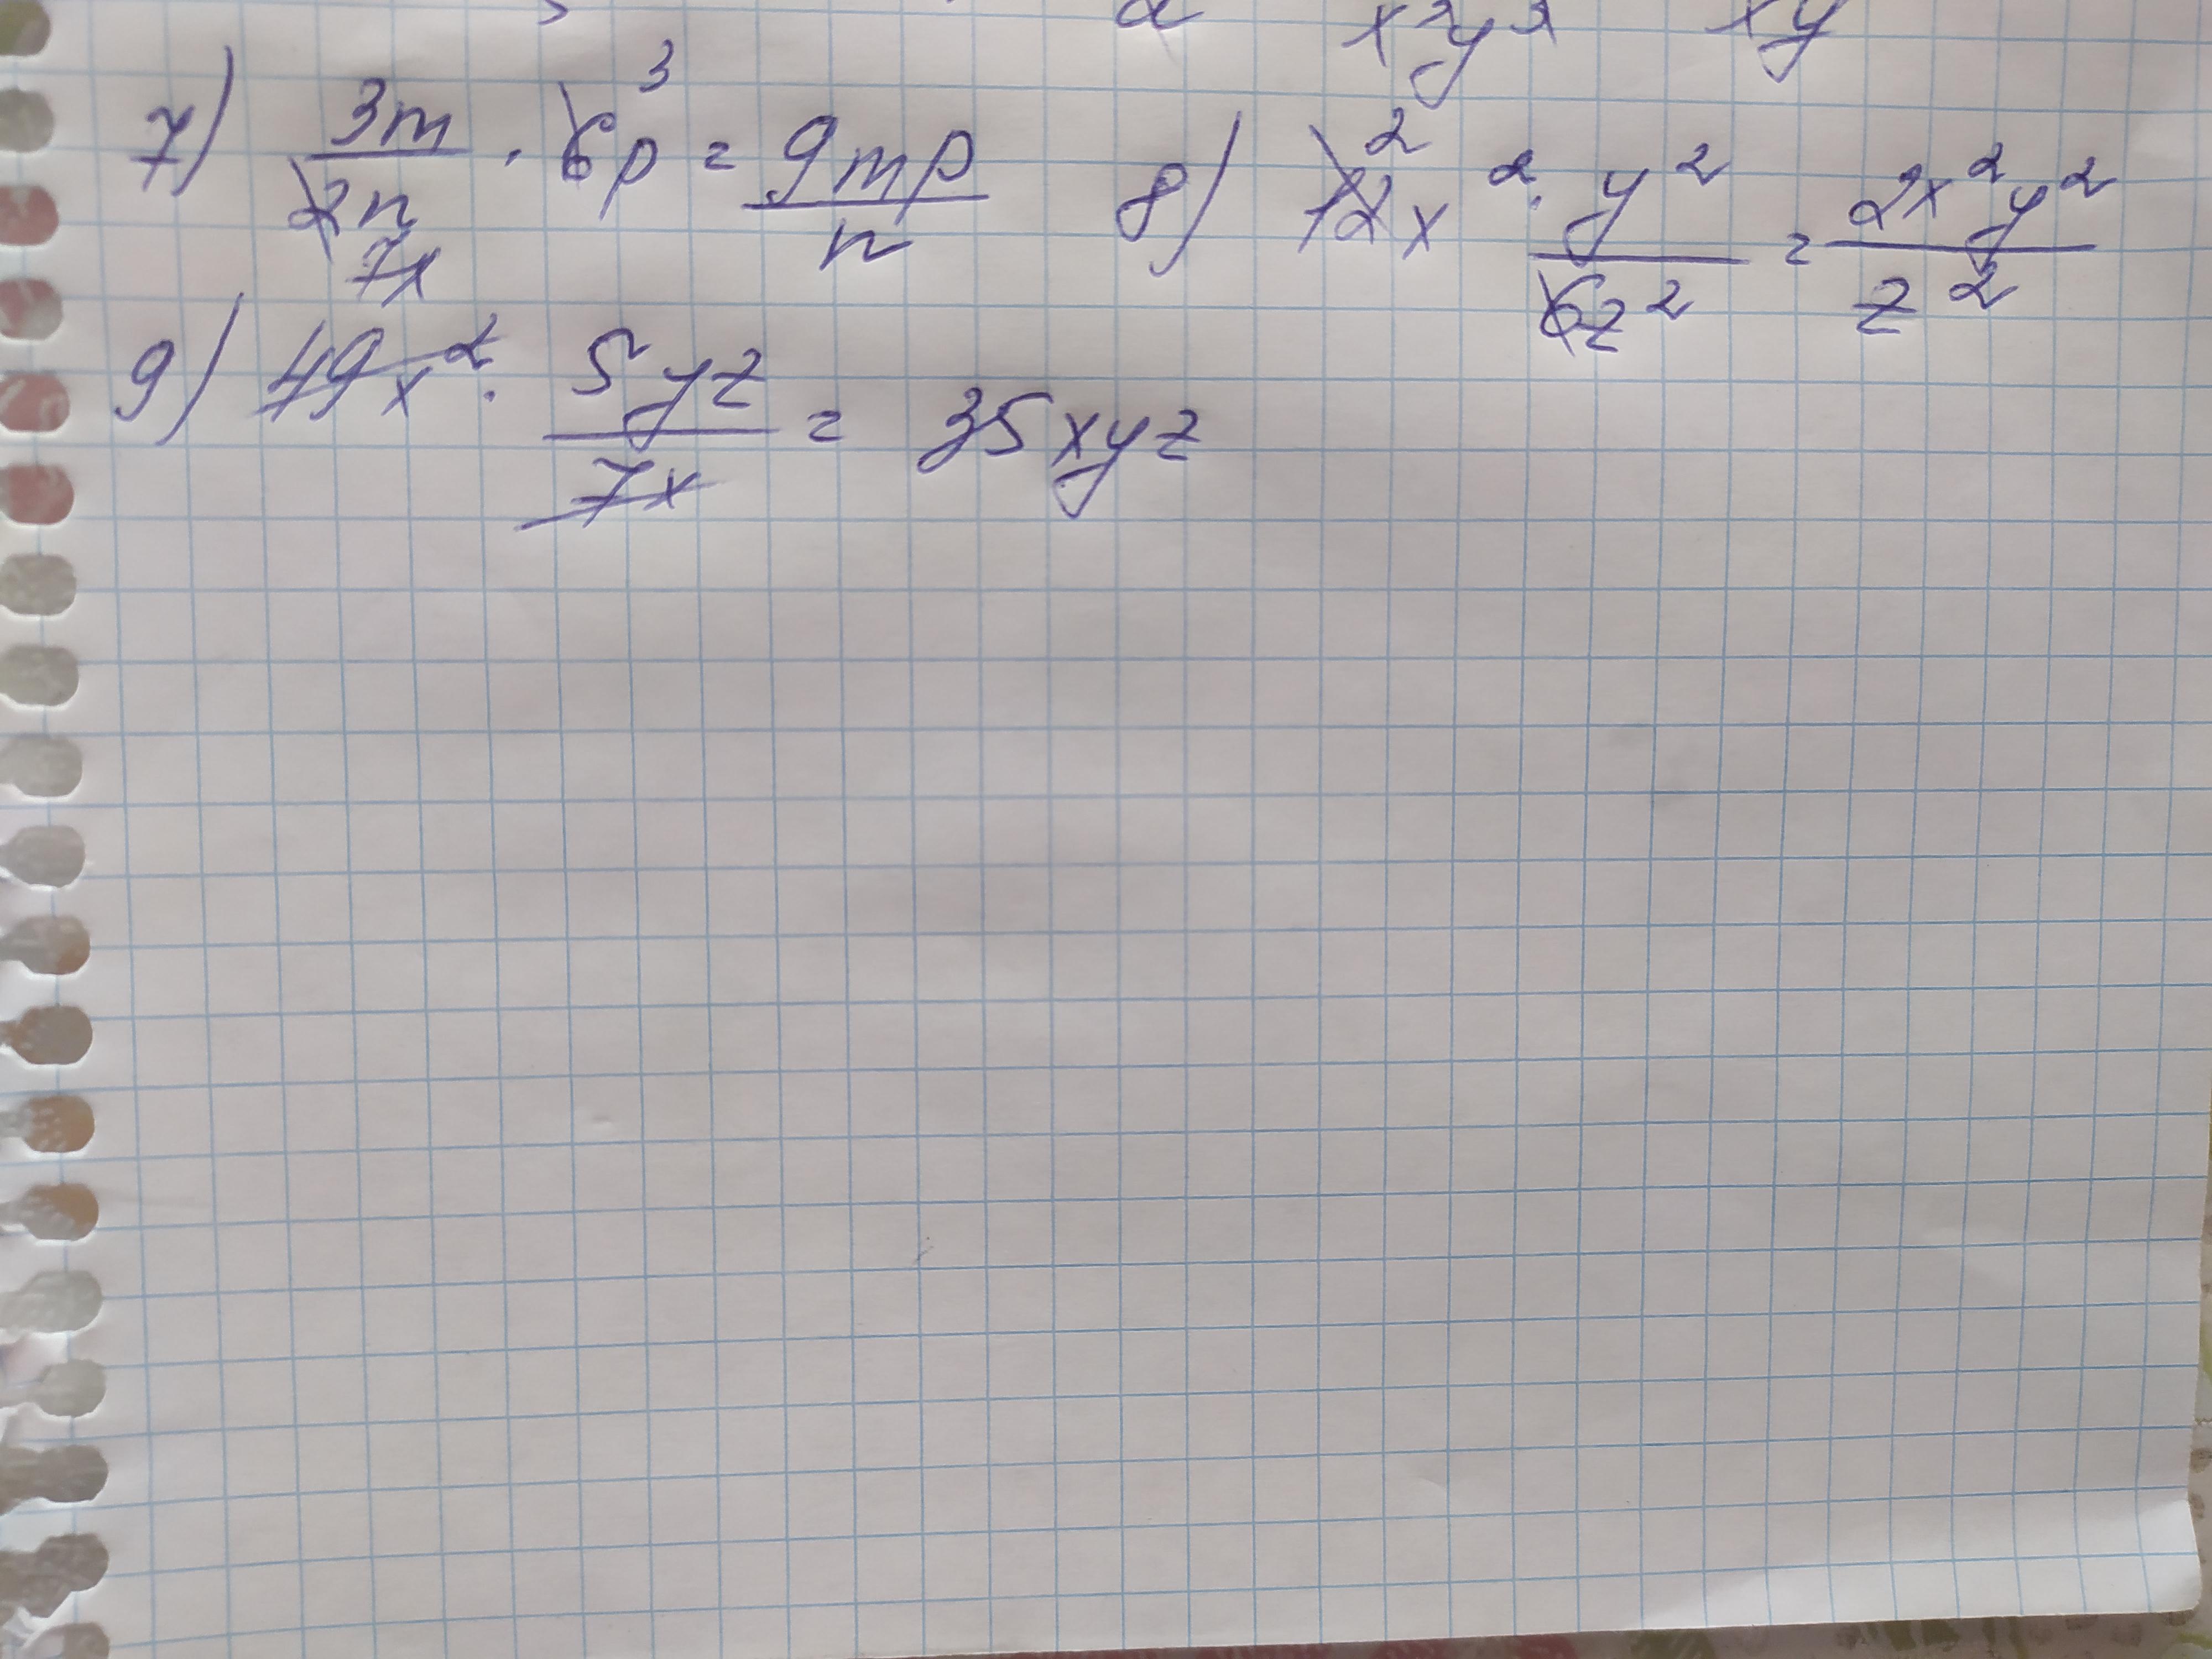 a x²y² xy
7) 3m/2n · 6p ³ = 9mp/n 8) 12x² ² · y²/6z² = 2x²y²/z²
7x
9) 49x² · 5yz/7x = 35xyz